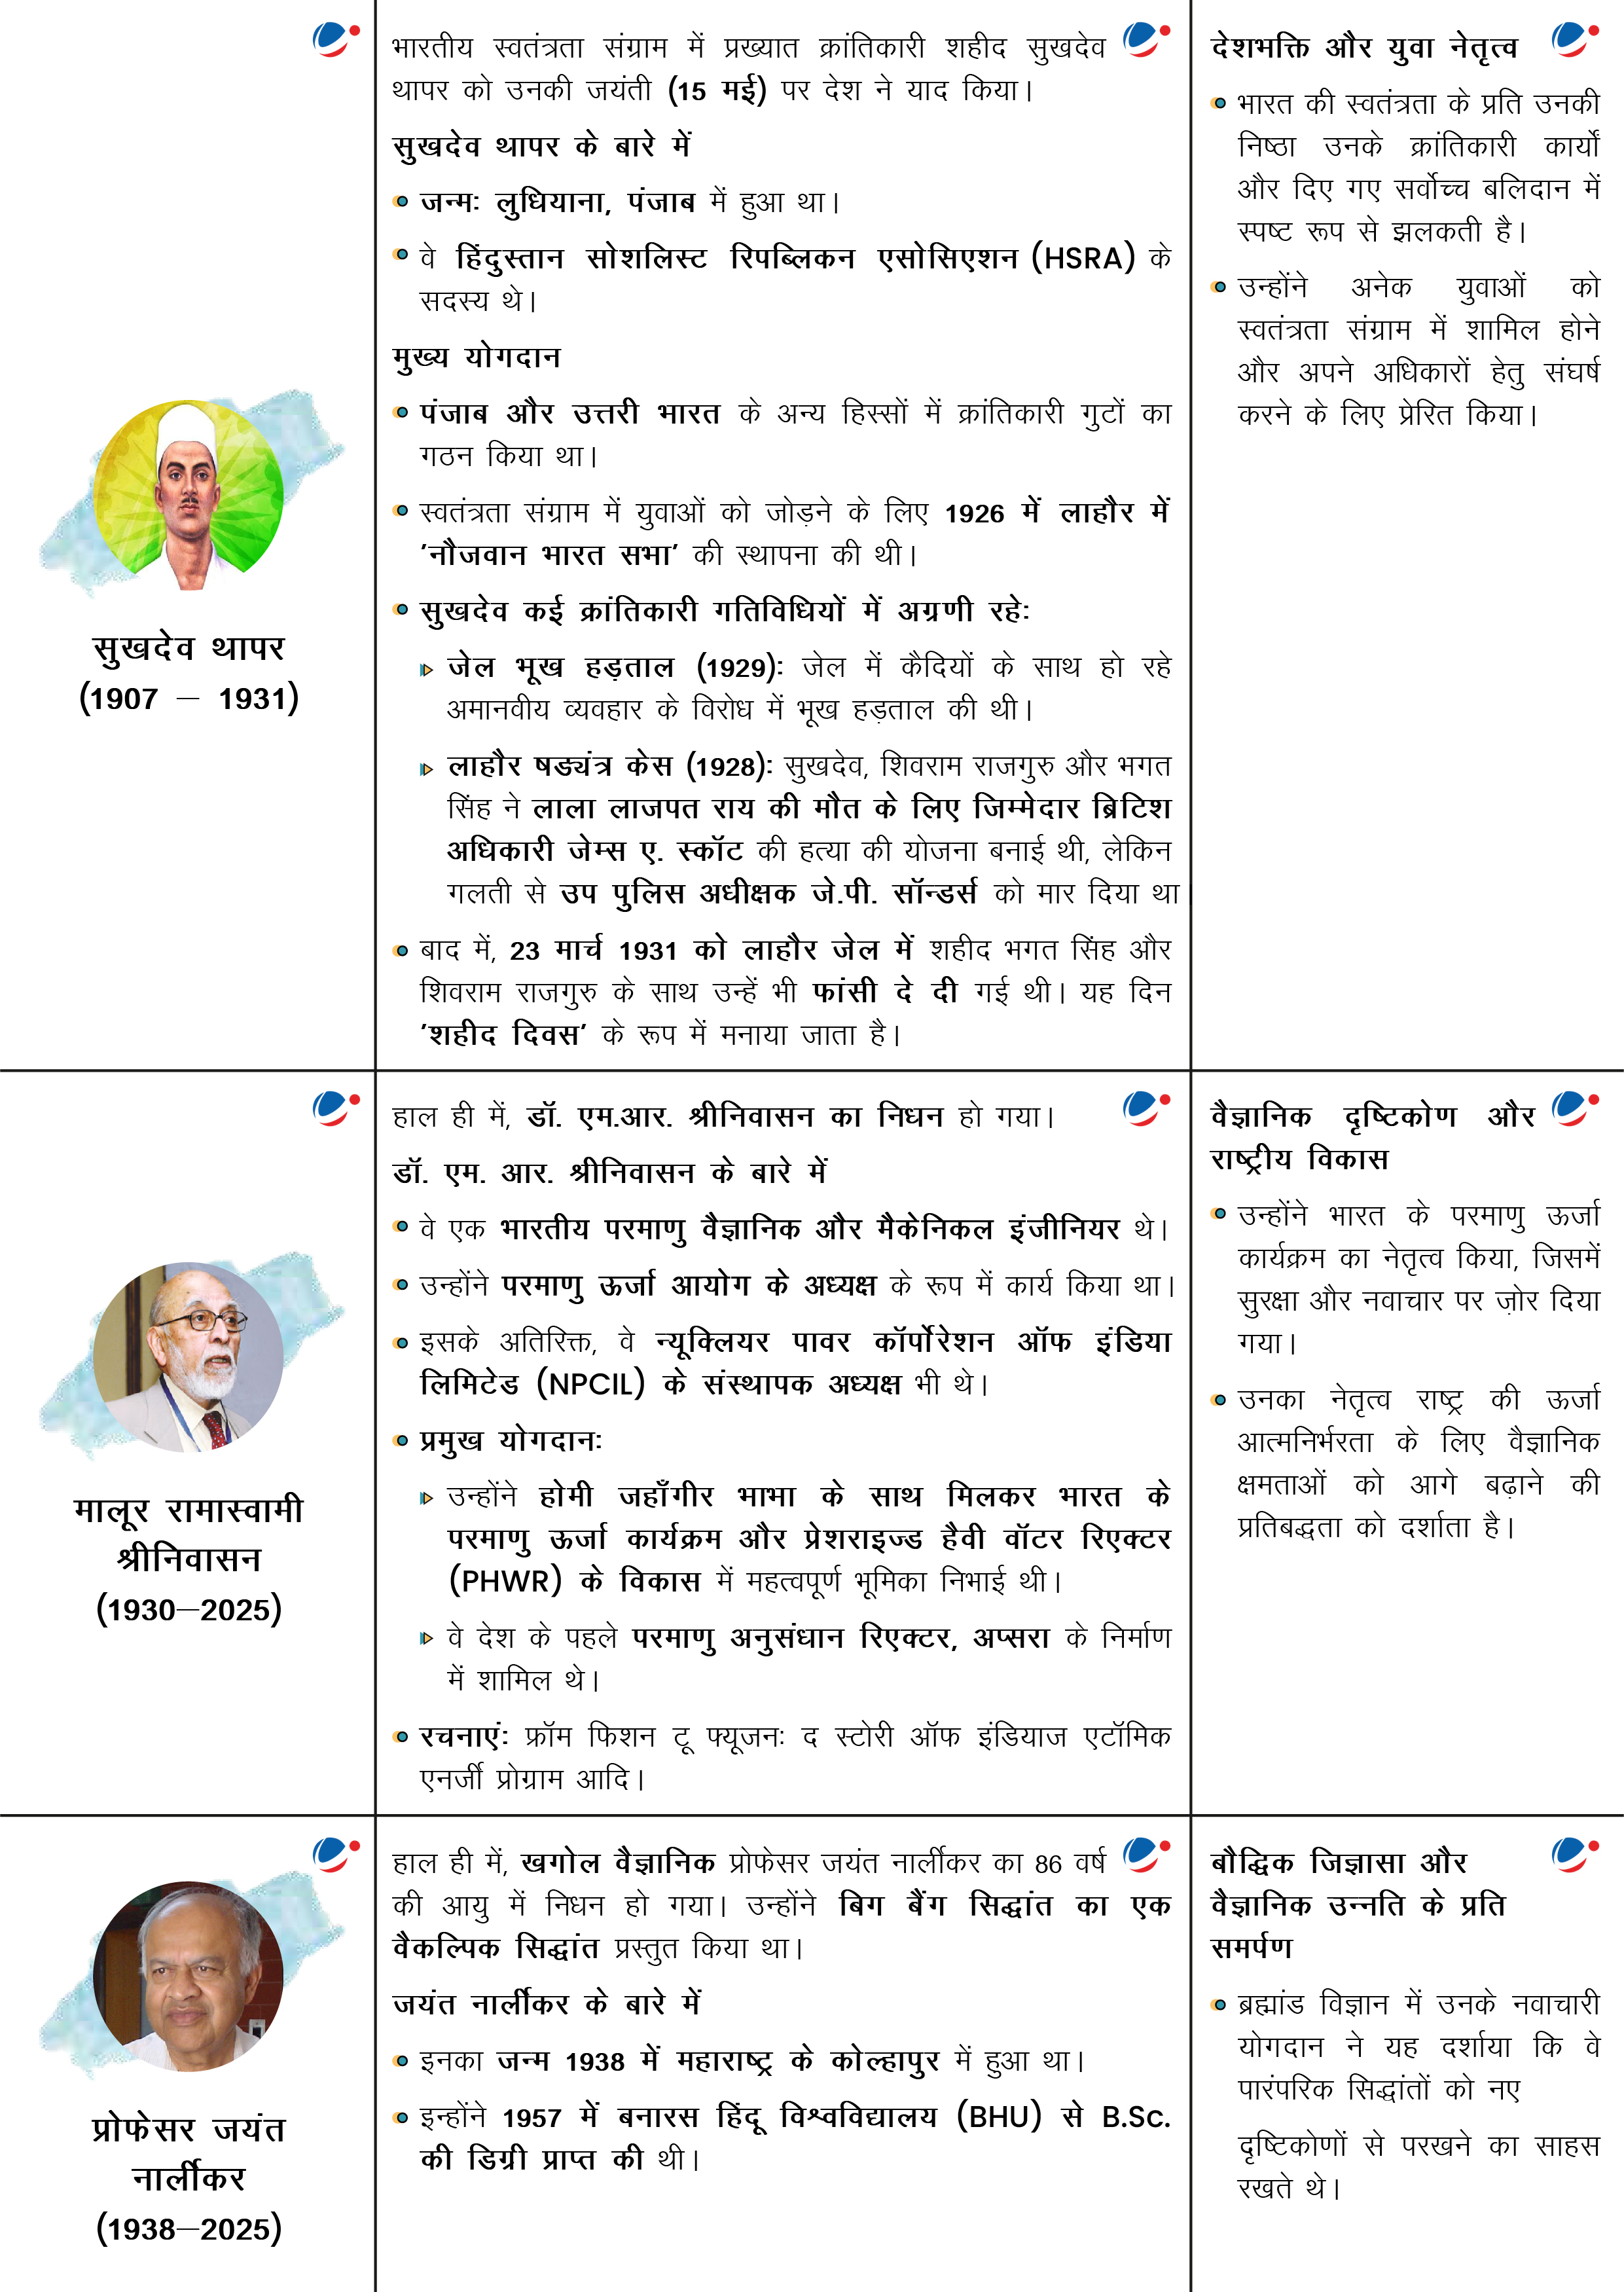 सुखदेव थापर
(1907 – 1931)
भारतीय स्वतंत्रता संग्राम में प्रख्यात क्रांतिकारी शहीद सुखदेव
थापर को उनकी जयंती (15 मई) पर देश ने याद किया।
सुखदेव थापर के बारे में
जन्म: लुधियाना, पंजाब में हुआ था।
वे हिंदुस्तान सोशलिस्ट रिपब्लिकन एसोसिएशन (HSRA) के
सदस्य थे।
मुख्य योगदान
पंजाब और उत्तरी भारत के अन्य हिस्सों में क्रांतिकारी गुटों का
गठन किया था।
स्वतंत्रता संग्राम में युवाओं को जोड़ने के लिए 1926 में लाहौर में
'नौजवान भारत सभा' की स्थापना की थी।
सुखदेव कई क्रांतिकारी गतिविधियों में अग्रणी रहे:
जेल भूख हड़ताल (1929): जेल में कैदियों के साथ हो रहे
अमानवीय व्यवहार के विरोध में भूख हड़ताल की थी।
लाहौर षड्यंत्र केस (1928): सुखदेव, शिवराम राजगुरु और भगत
सिंह ने लाला लाजपत राय की मौत के लिए जिम्मेदार ब्रिटिश
अधिकारी जेम्स ए. स्कॉट की हत्या की योजना बनाई थी, लेकिन
गलती से उप पुलिस अधीक्षक जे.पी. सॉन्डर्स को मार दिया था।
बाद में, 23 मार्च 1931 को लाहौर जेल में शहीद भगत सिंह और
शिवराम राजगुरु के साथ उन्हें भी फांसी दे दी गई थी। यह दिन
'शहीद दिवस' के रूप में मनाया जाता है।
देशभक्ति और युवा नेतृत्व
भारत की स्वतंत्रता के प्रति उनकी
निष्ठा उनके क्रांतिकारी कार्यों
और दिए गए सर्वोच्च बलिदान में
स्पष्ट रूप से झलकती है।
उन्होंने अनेक युवाओं को
स्वतंत्रता संग्राम में शामिल होने
और अपने अधिकारों हेतु संघर्ष
करने के लिए प्रेरित किया।
मालूर रामास्वामी
श्रीनिवासन
(1930–2025)
हाल ही में, डॉ. एम.आर. श्रीनिवासन का निधन हो गया।
डॉ. एम. आर. श्रीनिवासन के बारे में
वे एक भारतीय परमाणु वैज्ञानिक और मैकेनिकल इंजीनियर थे।
उन्होंने परमाणु ऊर्जा आयोग के अध्यक्ष के रूप में कार्य किया था।
इसके अतिरिक्त, वे न्यूक्लियर पावर कॉर्पोरेशन ऑफ इंडिया
लिमिटेड (NPCIL) के संस्थापक अध्यक्ष भी थे।
प्रमुख योगदान:
उन्होंने होमी जहाँगीर भाभा के साथ मिलकर भारत के
परमाणु ऊर्जा कार्यक्रम और प्रेशराइज्ड हैवी वॉटर रिएक्टर
(PHWR) के विकास में महत्वपूर्ण भूमिका निभाई थी।
वे देश के पहले परमाणु अनुसंधान रिएक्टर, अप्सरा के निर्माण
में शामिल थे।
रचनाएं: फ्रॉम फिशन टू फ्यूजन: द स्टोरी ऑफ इंडियाज एटॉमिक
एनर्जी प्रोग्राम आदि।
वैज्ञानिक दृष्टिकोण और
राष्ट्रीय विकास
उन्होंने भारत के परमाणु ऊर्जा
कार्यक्रम का नेतृत्व किया, जिसमें
सुरक्षा और नवाचार पर ज़ोर दिया
गया।
उनका नेतृत्व राष्ट्र की ऊर्जा
आत्मनिर्भरता के लिए वैज्ञानिक
क्षमताओं को आगे बढ़ाने की
प्रतिबद्धता को दर्शाता है।
प्रोफेसर जयंत
नार्लीकर
(1938–2025)
हाल ही में, खगोल वैज्ञानिक प्रोफेसर जयंत नार्लीकर का 86 वर्ष
की आयु में निधन हो गया। उन्होंने बिग बैंग सिद्धांत का एक
वैकल्पिक सिद्धांत प्रस्तुत किया था।
जयंत नार्लीकर के बारे में
इनका जन्म 1938 में महाराष्ट्र के कोल्हापुर में हुआ था।
इन्होंने 1957 में बनारस हिंदू विश्वविद्यालय (BHU) से B.Sc.
की डिग्री प्राप्त की थी।
बौद्धिक जिज्ञासा और
वैज्ञानिक उन्नति के प्रति
समर्पण
ब्रह्मांड विज्ञान में उनके नवाचारी
योगदान ने यह दर्शाया कि वे
पारंपरिक सिद्धांतों को नए
दृष्टिकोणों से परखने का साहस
रखते थे।